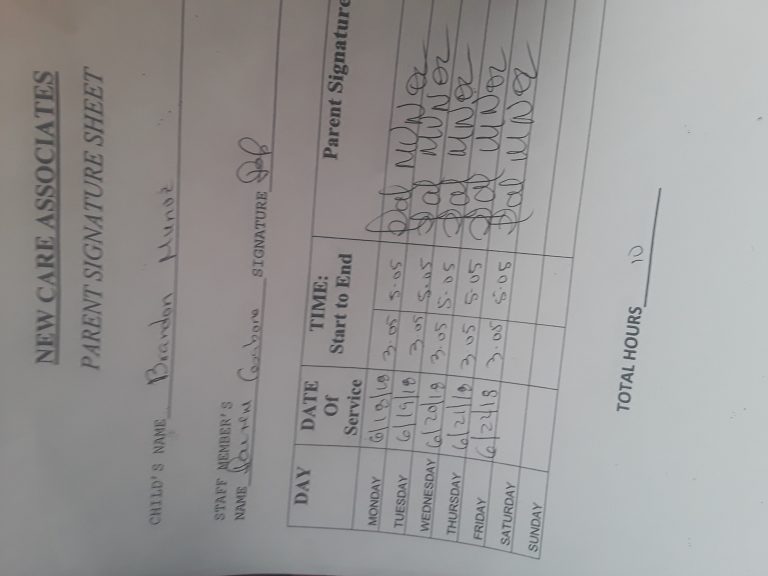 NEW CARE ASSOCIATES
PARENT SIGNATURE SHEET
CHILD'S NAME Brandon Munoz
STAFF MEMBER'S
NAME SIGNATURE
DAY DATE Of Service TIME: Start to End Parent Signature
MONDAY 6/18/18 3.05 5.05
TUESDAY 6/19/18 3.05 5.05
WEDNESDAY 6/20/18 3.05 5.05
THURSDAY 6/21/18 3.05 5.05
FRIDAY 3.05 5.05
SATURDAY
SUNDAY
TOTAL HOURS 10